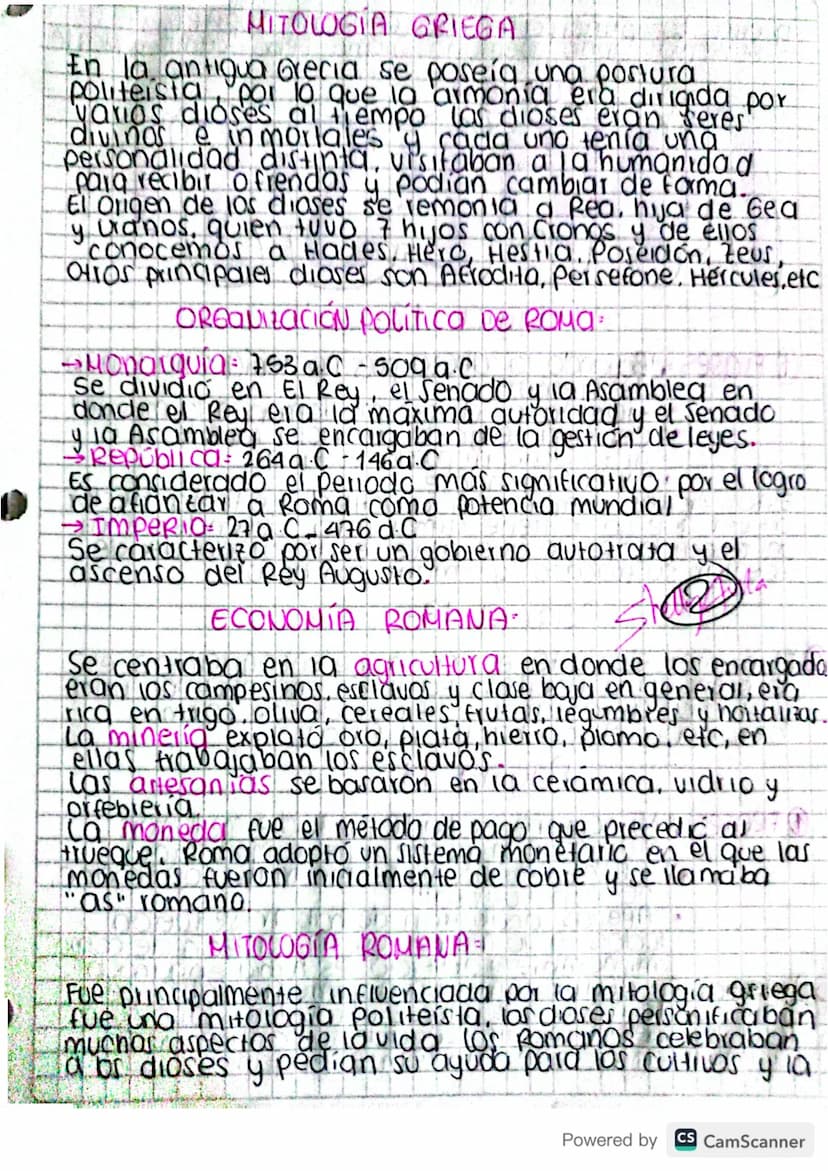 MITOLOGÍA GRIEGA
En la antigua Grecia se poseía una postura
politeísta, por lo que la armonía era dirigida por
varios dioses al tiempo los dioses eran seres
divinos e inmortales y cada uno tenía una
personalidad distinta, visitaban a la humanidad
para recibir ofrendas y podían cambiar de forma.
El origen de los dioses se remonta a Rea, hija de Gea
y Uranos, quien tuvo 7 hijos con Cronos y de ellos
conocemos a Hades, Hera, Hestia, Poseidón, Zeus,
otros principales dioses son Afrodita, Persefone, Hércules, etc
ORGANIZACIÓN POLÍTICA DE ROMA:
→Monarquía: 753 a.C - 509 a.C
Se dividió en El Rey, el Senado y la Asamblea en
donde el Rey era la máxima autoridad y el Senado
y la Asamblea se encargaban de la gestión de leyes.
→República: 264 a.C - 146 a.C
Es considerado el periodo más significativo por el logro
de afianzar a Roma como potencia mundial
→Imperio: 27 a C - 476 d.C
Se caracterizó por ser un gobierno autotrata y el
ascenso del Rey Augusto.
2
ECONOMÍA ROMANA:
Se centraba en la agricultura en donde los encargado
eran los campesinos, esclavos y clase baja en general, era
rica en trigo, oliva, cereales, frutas, legumbres y hortalizas.
La minería explotó oro, plata, hierro, plomo, etc, en
ellas trabajaban los esclavos.
Las artesanías se basaron en la cerámica, vidrio y
orfebrería.
La moneda fue el método de pago que precedió al
trueque. Roma adoptó un sistema monetario en el que las
monedas fueron inicialmente de cobre y se llamaba
"as" romano.
MITOLOGÍA ROMANA:
Fue principalmente influenciada por la mitología griega
fue una mitología politeísta, los dioses personificaban
muchos aspectos de la vida los Romanos celebraban
a los dioses y pedían su ayuda para los cultivos y la
Powered by CS CamScanner